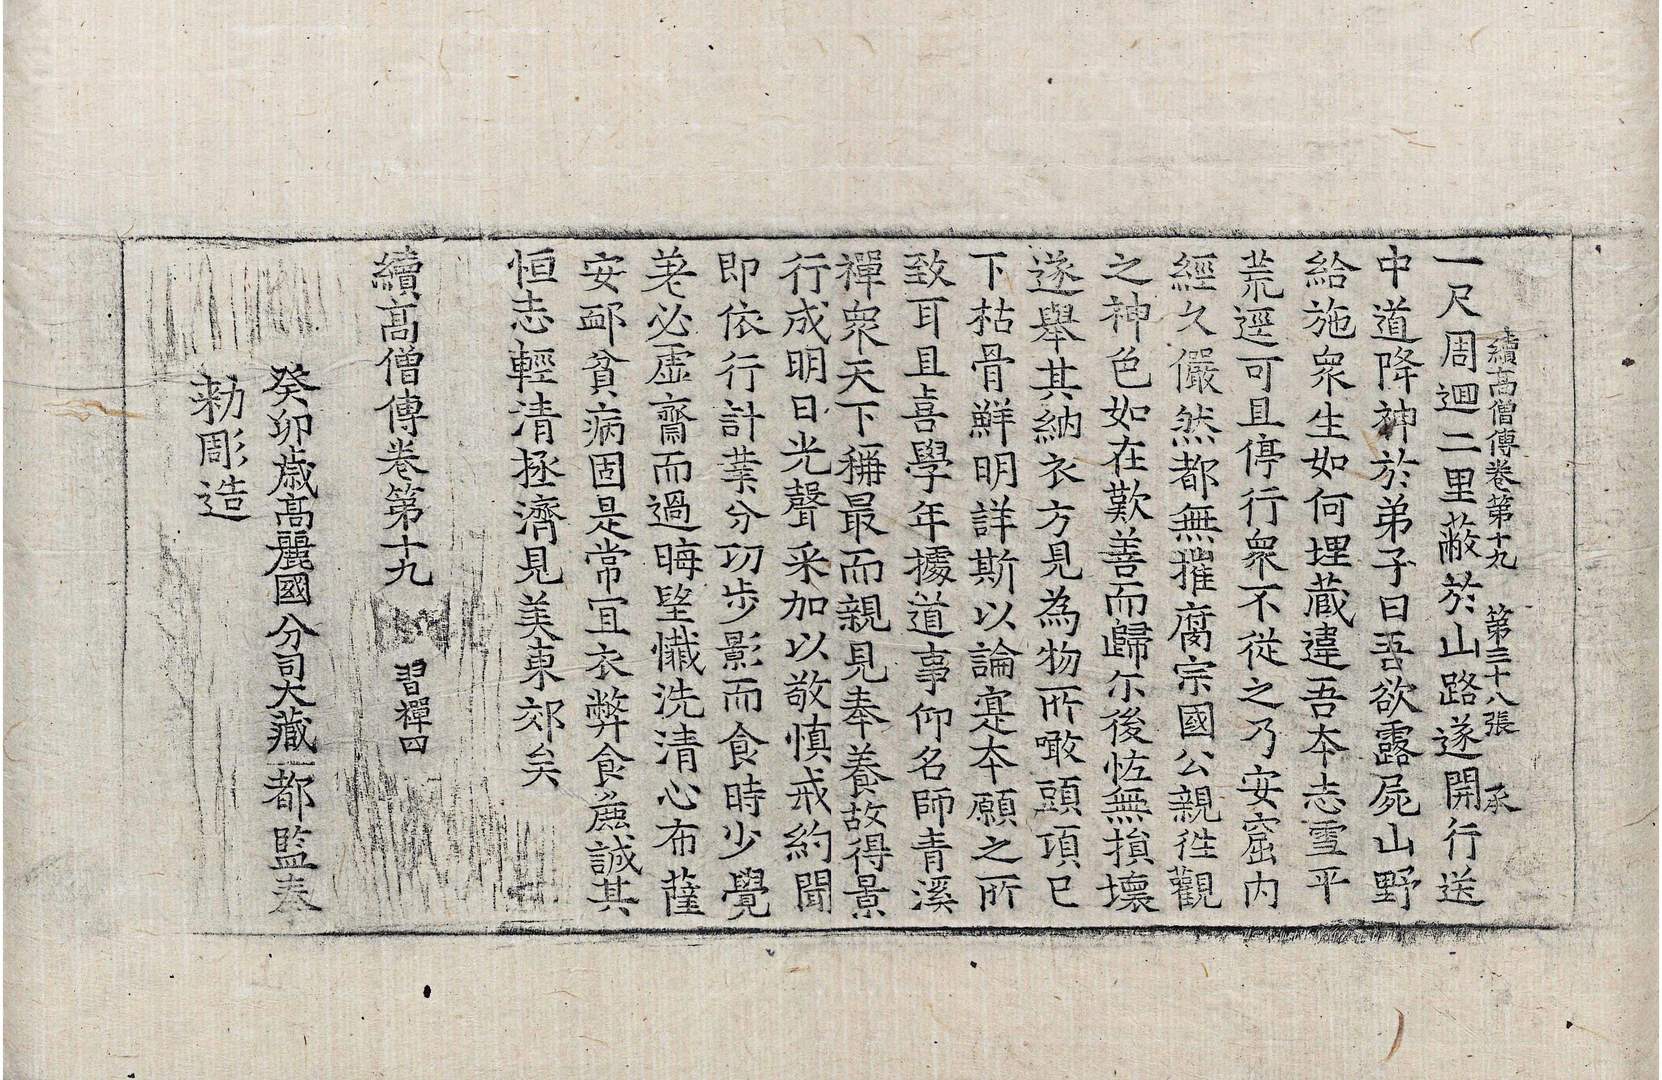 續高僧傳卷第十九 第三十八張 承
一尺周迴二里蔽於山路遂開行送
中道降神於弟子曰吾欲露屍山野
給施衆生如何埋蔵違吾夲志雪平
荒逕可且停行衆不從之乃安窟内
經久儼然都無摧腐宗國公親徃觀
之神色如在歎善而歸尒後恠無損壞
遂舉其納衣方見為物所噉頭項已
下枯骨鮮明詳斯以論寔夲願之所
致耳且喜學年據道事仰名師青溪
禪衆天下稱最而親見奉養故得景
行成明日光聲采加以敬慎戒約聞
即依行計業分功步影而食時少覺
差必虛齋而過晦望懺洗清心布薩
安邳貧病固是常宜衣弊食麁誠其
恒志輕清拯濟見美東郊矣
續高僧傳卷第十九 習禪四
癸卯歳高麗國分司大藏都監奉
勑彫造